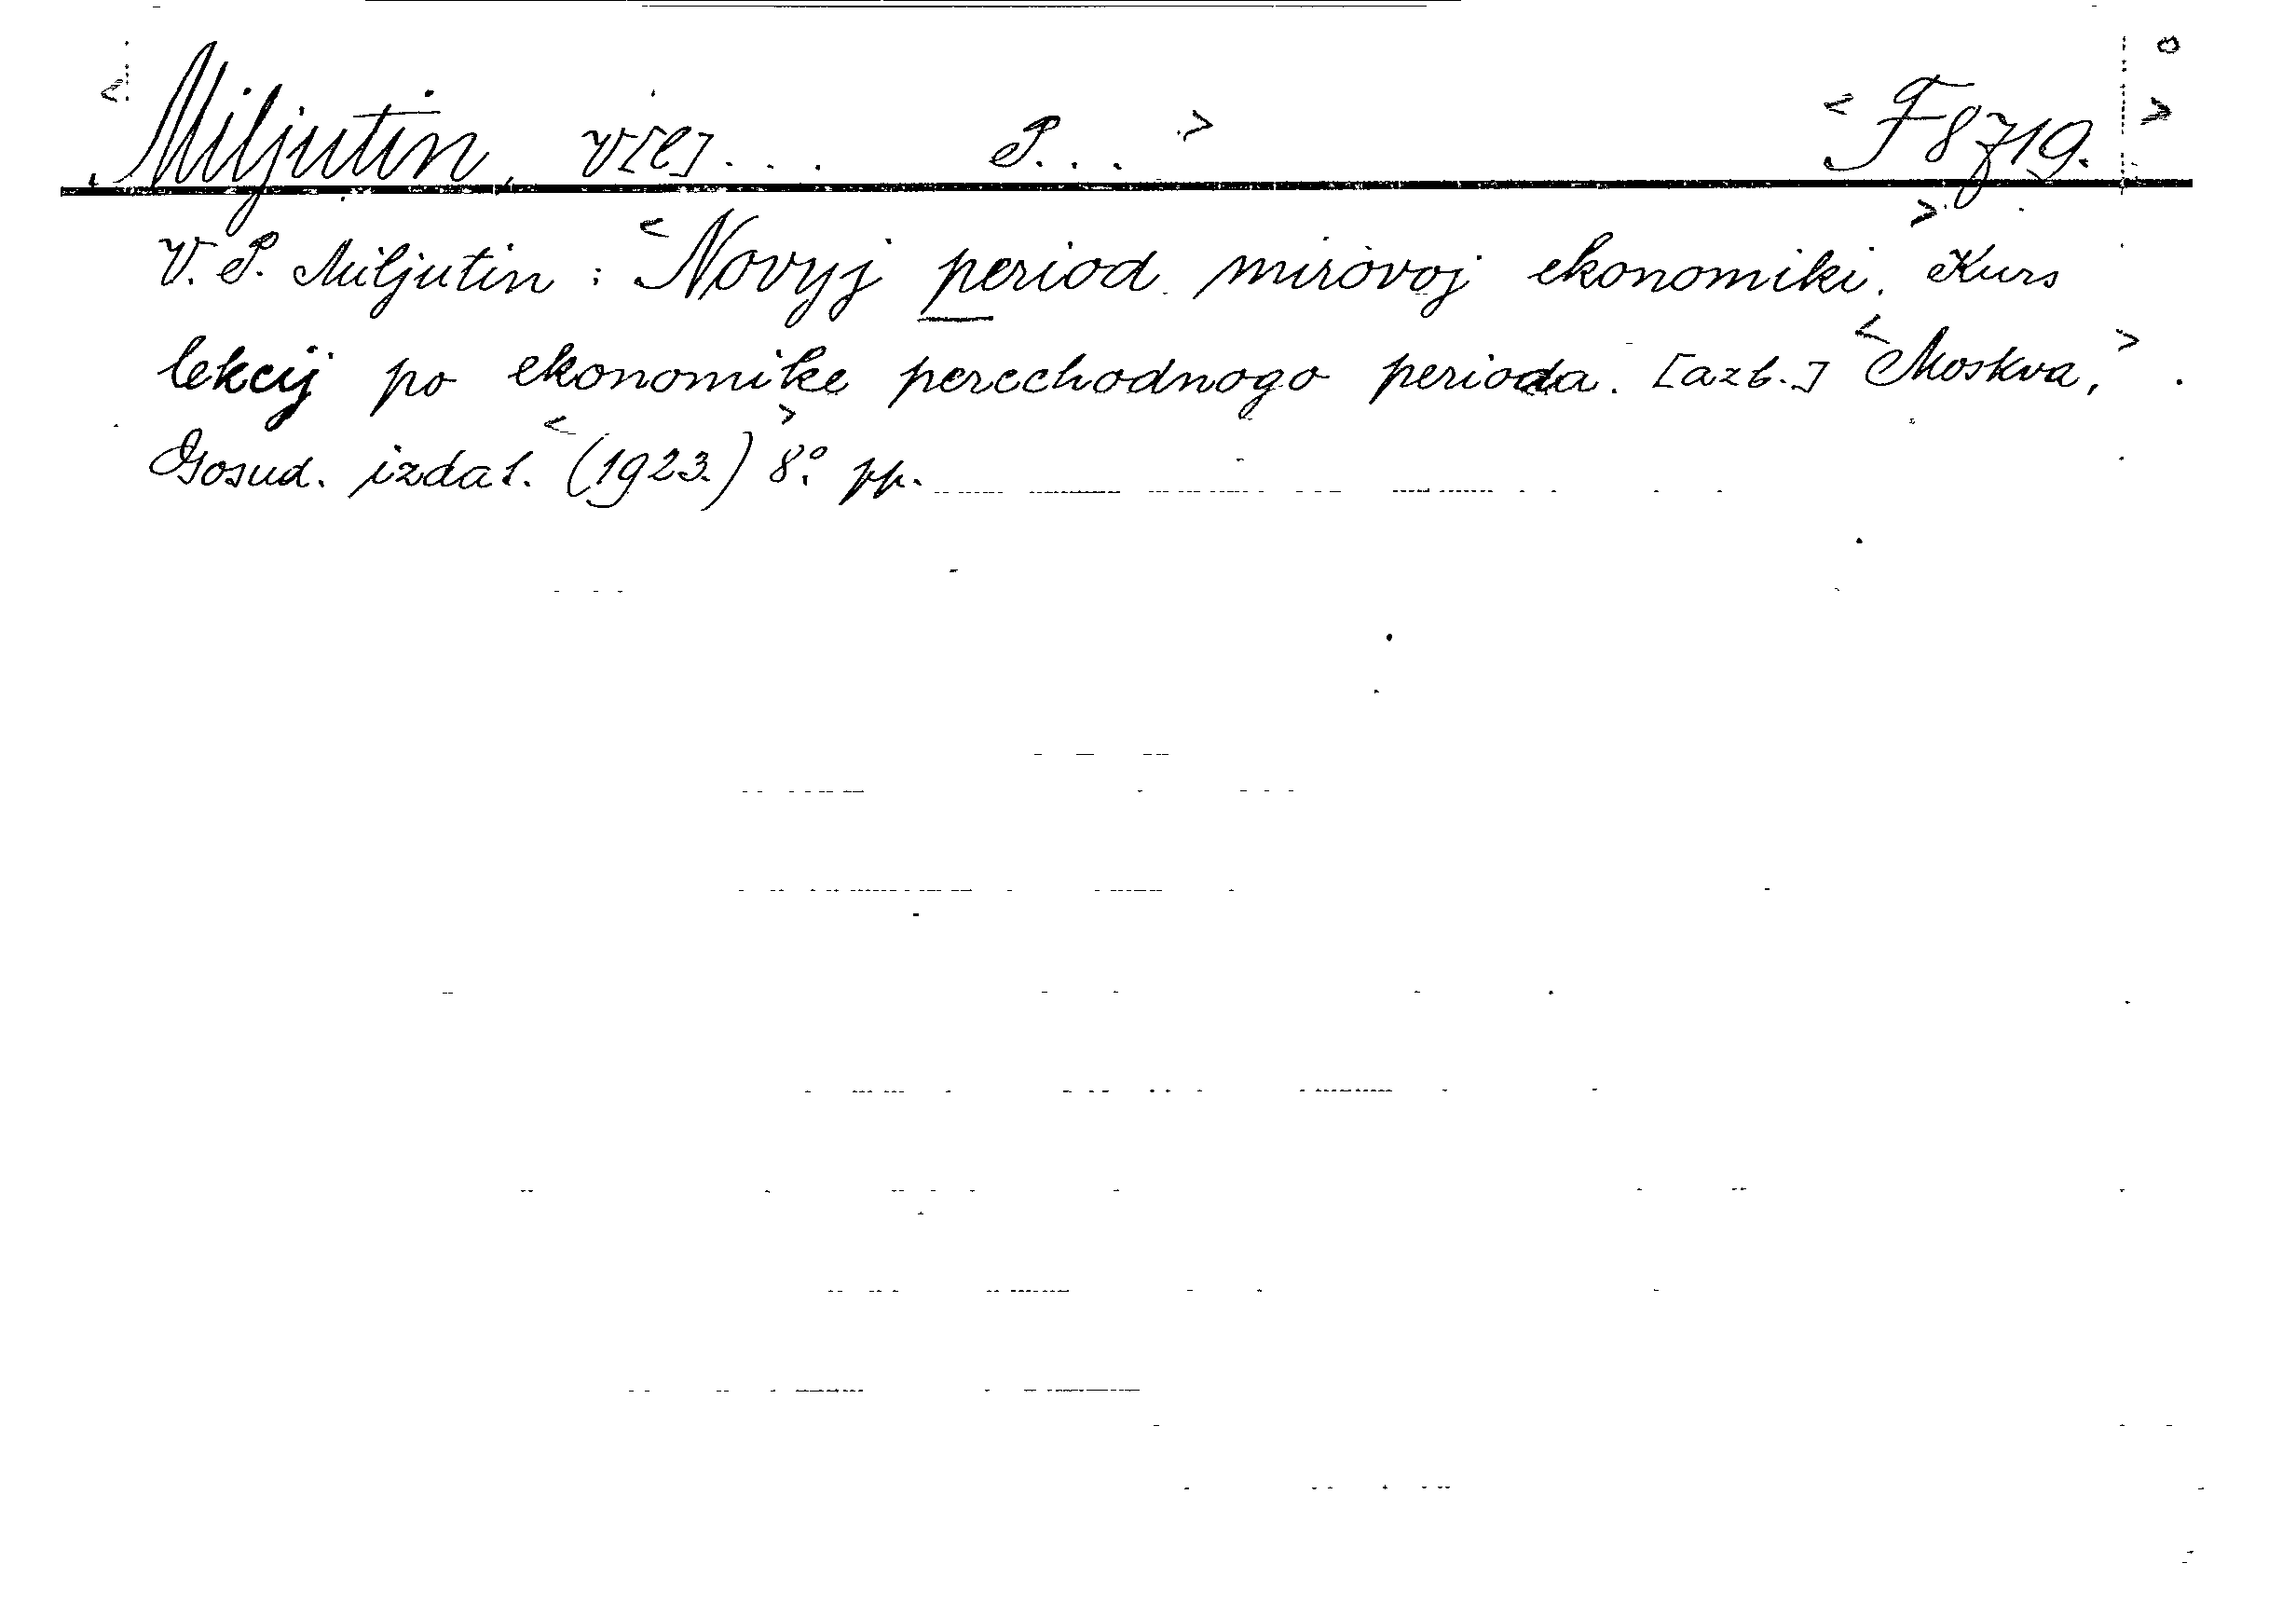 <Miljutin, V[l]... P...> <F 8719.>
V. P. Miljutin: <Novyj period mirovoj ekonomiki.> Kurs
lekcij po ekonomike perechodnogo perioda. [azb.] <Moskva,>
Gosud. izdat. <(1923.)> 8º. pp.